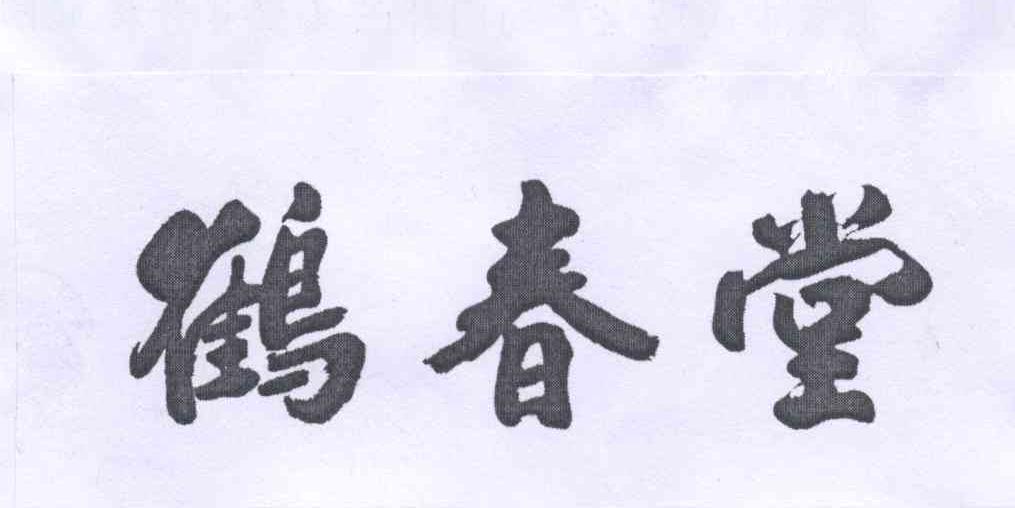 鶴春堂